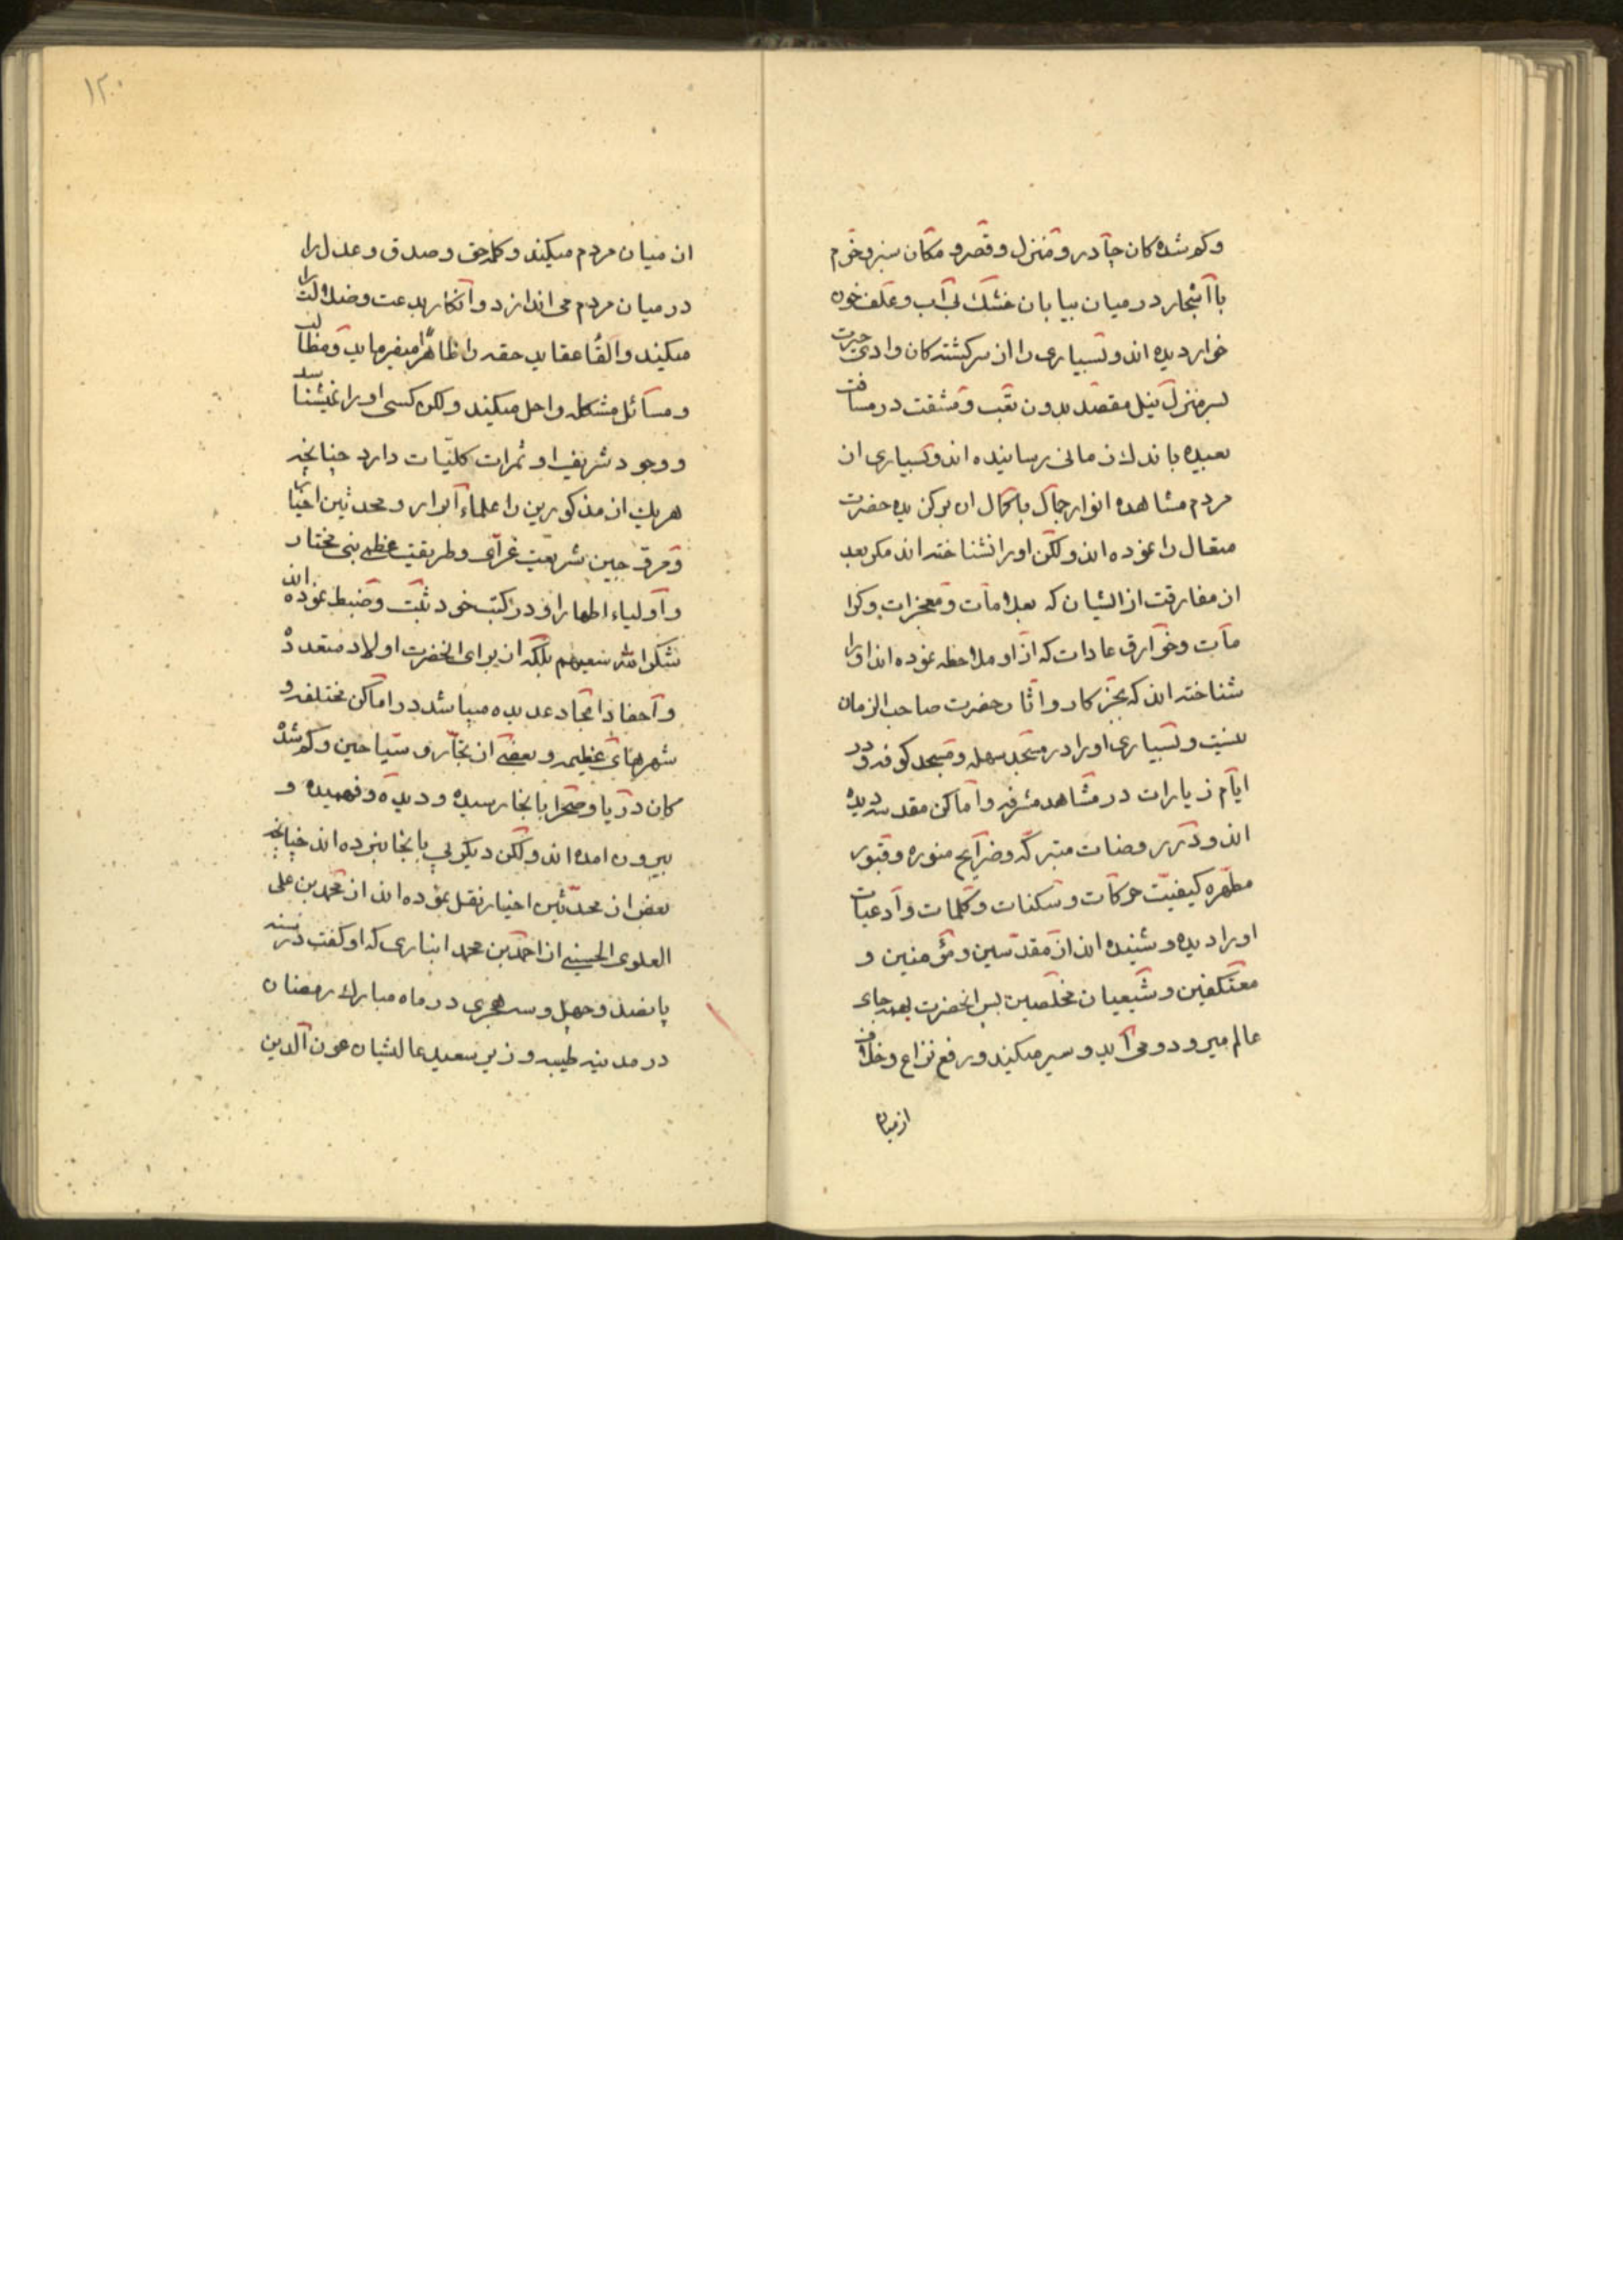 و کم شده کان جا در و منزل و قصر و مکان سبز و خرم
با اشجار در میان بیابان خشک بی آب و علف خون
خوار دیده اند و بسیاری را از سرکشته کان وادی حیرت
بسر منزل نیل مقصد بدون تعب و مشقت در مسافت
بعیده باندک زمانی رسانیده اند و بسیاری از
مردم مشاهده انوار جمال با کمال ان برکزیده حضرت
متعال را نموده اند ولکن او را نشناخته اند مکر بعد
از مفارقت از ایشان که بعلامات و معجزات و کرا
مات و خوارق عادات که از او ملاحظه نموده اند او را
شناخته اند که بجز کار و اثار حضرت صاحب الزمان
نیست و بسیاری او را در مسجد سهله و مسجد کوفه و در
ایام زیارات در مشاهد مشرفه و اماکن مقدسه دیده
اند و در روضات متبرکه و ضرایح منوره و قبور
مطهره کیفیت حرکات و سکنات و کلمات و ادعیات
او را دیده و شنیده اند از مقدسین و مؤمنین و
معتکفین و شیعیان مخلصین پس انحضرت بهمه جای
عالم میرود و می آید و سیر میکیند و رفع نزاع و خلاف
از میان
۱۲۰
از میان مردم میکیند و کلمه حق و صدق و عدل را
در میان مردم می اندازد و انکار بدعت و ضلالت را
میکیند و القا عقاید حقه را ظاهرًا میفرماید و مطالب
و مسائل مشکله را حل میکیند ولکن کسی او را نمیشناسد
و وجود شریف او ثمرات کلیات دارد چنانچه
هریک از مذکورین را علماء ابرار و محدثین اخیار
و مروجین شریعت غرای و طریقت عظمی نبی مختار
و اولیاء اطهار او در کتب خود ثبت و ضبط نموده اند
شکر الله سعیهم بلکه از برای انحضرت اولاد متعدده
و احفاد امجاد عدیده میباشد در اماکن مختلفه و
شهرهای عظیمه و بعضی از تجار و سیاحین و کم شده
کان دریا و صحرا بانجا رسیده و دیده و فهمیده و
بیرون امده اند ولکن دیکر پی بانجا نبرده اند چنانچه
بعض از محدثین اخیار نقل نموده اند از محمد بن علی
العلوی الحسینی از احمد بن محمد انباری که او کفت در سنه
پانصد و چهل و سه هجری در ماه مبارک رمضان
در مدینه طیبه وزیر سعید عالیشان عون الدین